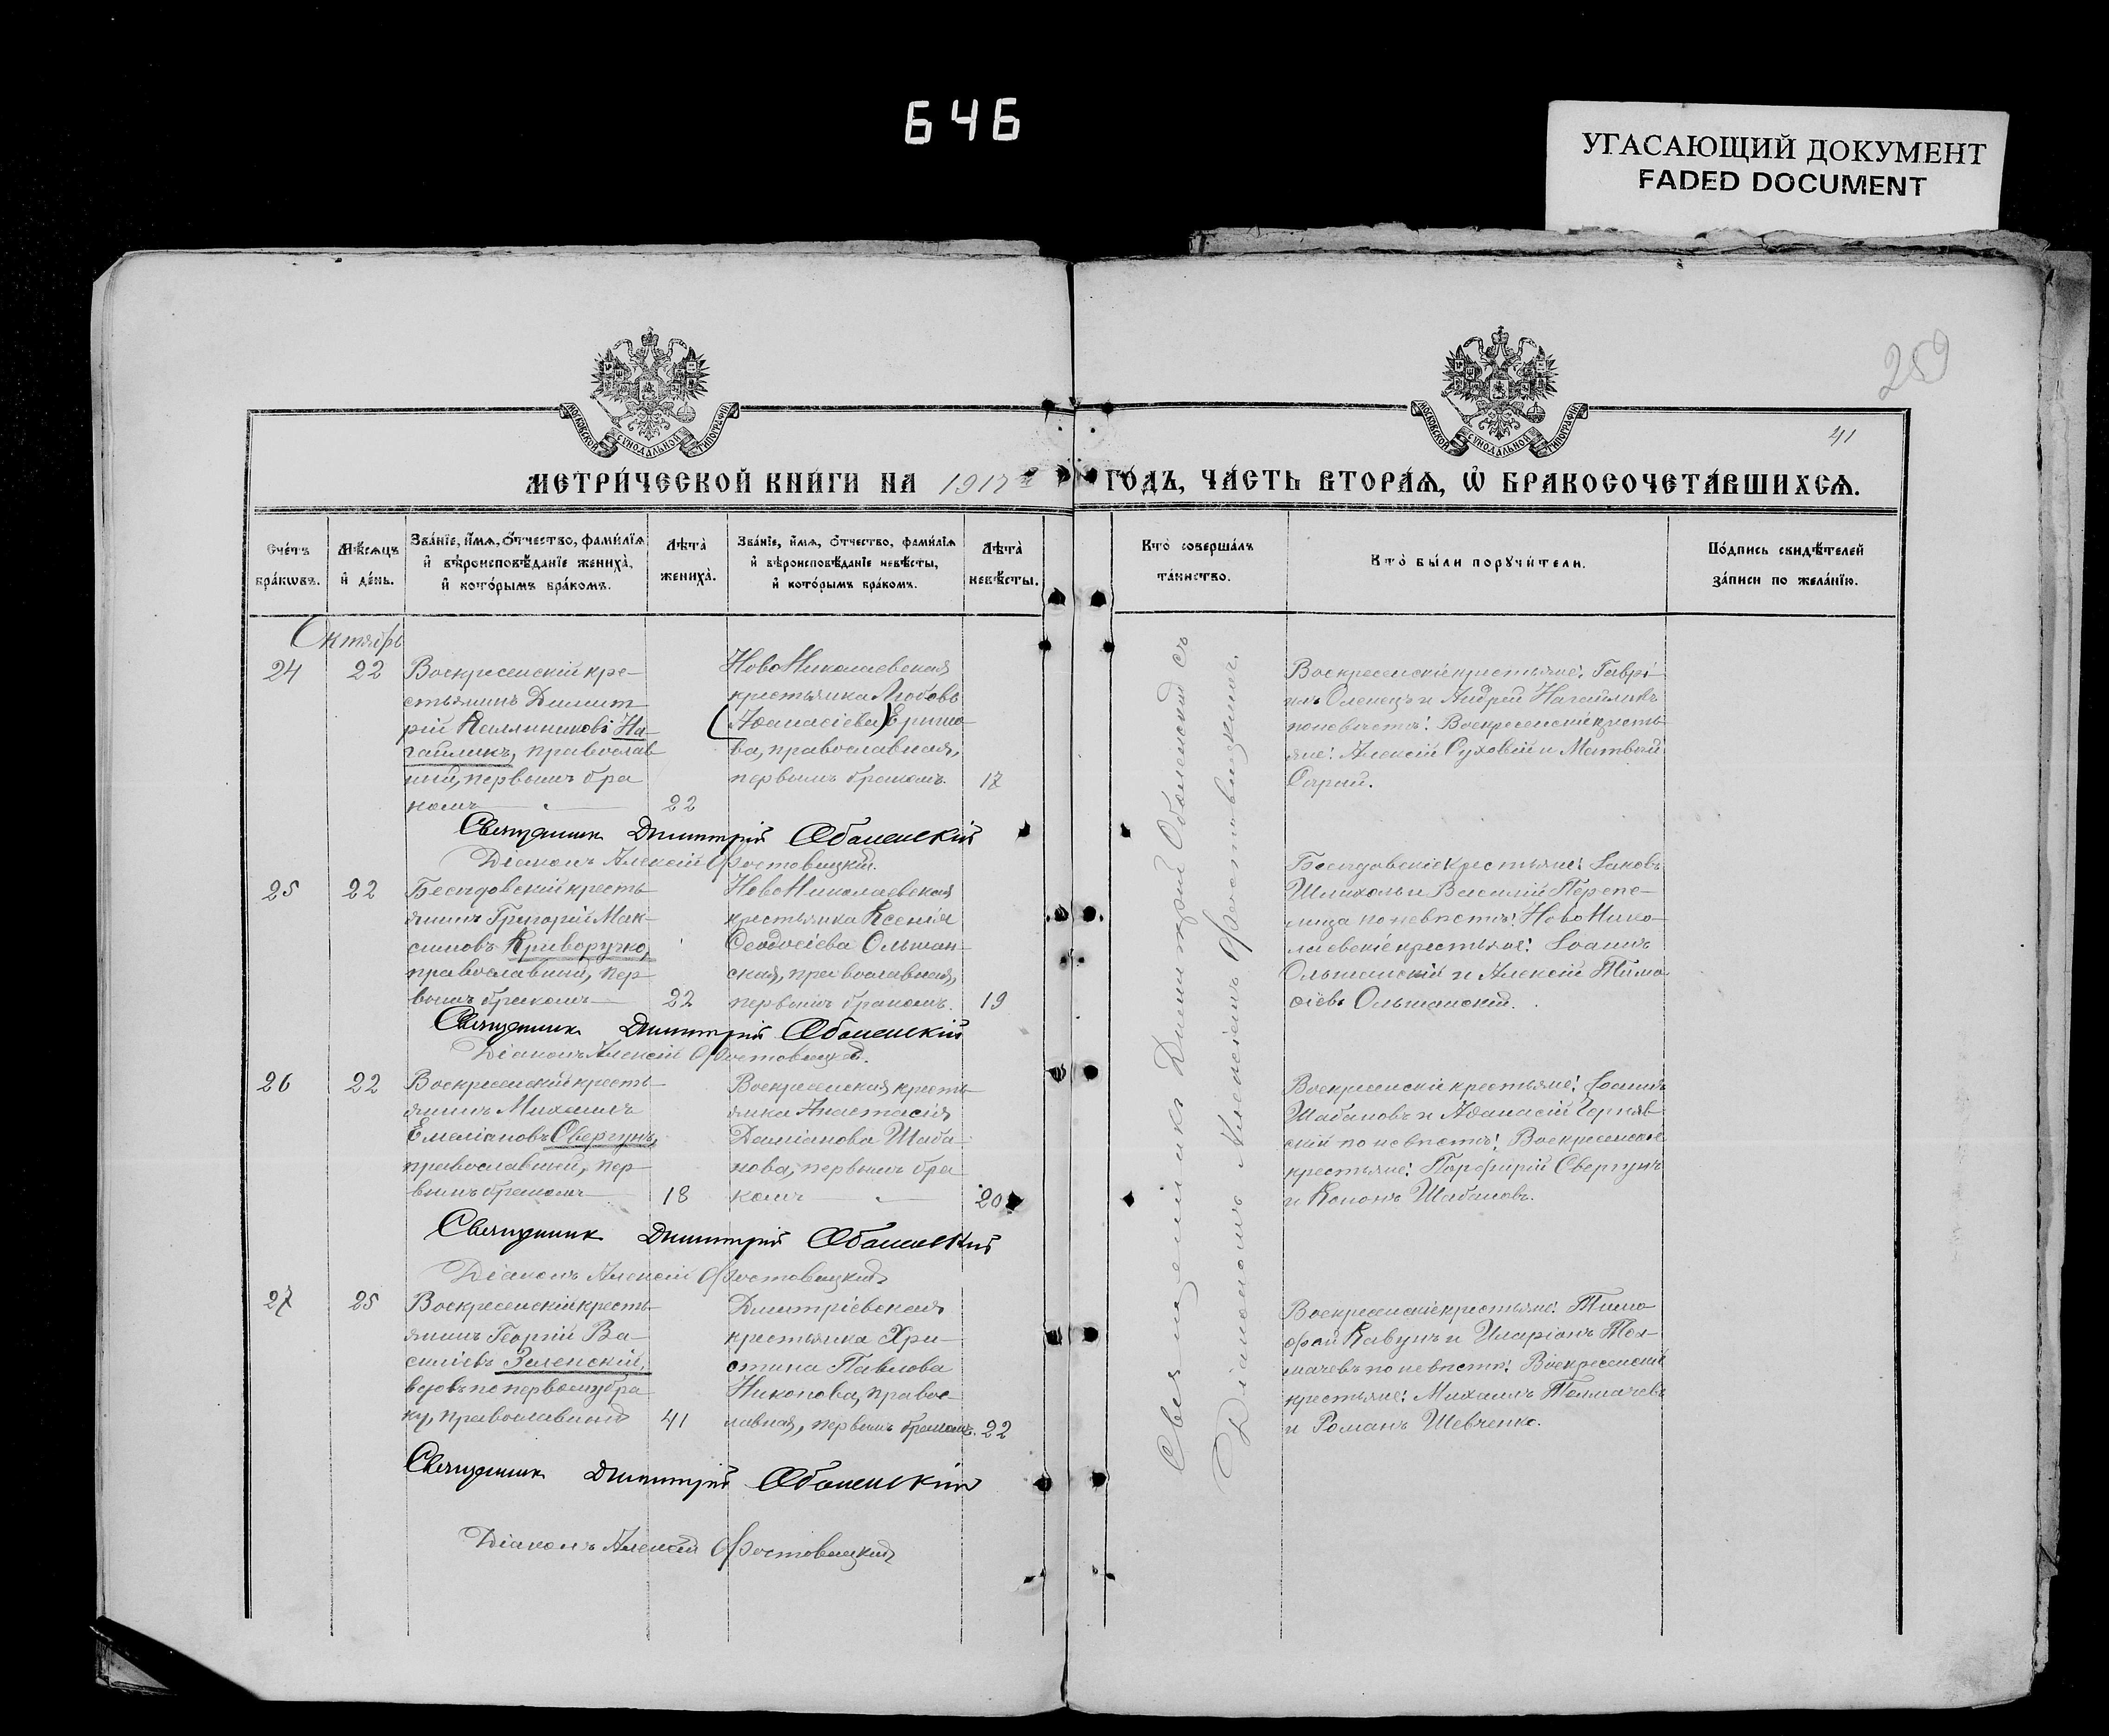 646
УГАСАЮЩИЙ ДОКУМЕНТ
FADED DOCUMENT
259
41
МОСКОВСКОЙ СѴНОДАЛЬНОЙ ТИПОГРАФІИ
МОСКОВСКОЙ СѴНОДАЛЬНОЙ ТИПОГРАФІИ
МЕТРИ́ЧЕСКОЙ КНИ́ГИ НА 1917 й ГО́ДЪ, ЧА́СТЬ ВТОРА́Ѧ, Ѡ БРАКОСОЧЕТА́ВШИХСѦ.
Сче́тъ бра́кѡвъ.
Мѣ́сѧцъ и҆ де́нь.
Зва́нїе, и҆́мѧ, ѻ҆́тчество, фами́лїѧ
и҆ вѣроисповѣ́данїе жениха̀,
и҆ кото́рымъ бра́комъ.
Лѣта̀ жениха̀.
Зва́нїе, и҆́мѧ, ѻ҆́тчество, фами́лїѧ
и҆ вѣроисповѣ́данїе невѣ́сты,
и҆ кото́рымъ бра́комъ.
Лѣта̀ невѣ́сты.
Кто̀ соверша́лъ та́инство.
Кто̀ бы́ли порꙋчи́тели.
По́дпись свидѣ́телей
за́писи по жела́нїю.
Октябрь
24
22
Воскресенскій кре-
стьянинъ Димит
рій Каллиниковъ На-
гайликъ, православ
ный, первымъ бра
комъ
22
НовоНиколаевская
крестьянка Любовь
(Аѳанасіева) Ершо
ва, православная,
первымъ бракомъ.
17
Воскресенскіе крестьяне: Гаври-
илъ Оленецъ и Андрей Нагайликъ
по невѣстѣ: Воскресенскіе кресть
яне: Алексій Суховій и Матвѣй
Священникъ Димитрій Оболенскій
Діаконъ Алексій Фостовицкій.
25
22
Бесѣдовскій кресть-
янинъ Григорій Мак-
симовъ Криворучко,
православный, пер-
вымъ бракомъ
22
НовоНиколаевская
крестьянка Ксенія
Ѳеодосіева Ольшан-
ская, православная,
первымъ бракомъ.
19
Бесѣдовскіе крестьяне: Іаковъ
Шлихоль и Василій Перепе-
лица по невѣстѣ: НовоНико-
лаевскіе крестьяне: Іоаннъ
Ольшанскій и Алексій Тимо
ѳіевъ Ольшанскій.
Священникъ Димитрій Оболенскій
Діаконъ Алексій Фостовицкій.
26
22
Воскресенскій кресть-
янинъ Михаилъ
Емеліановъ Свергунъ,
православный, пер-
вымъ бракомъ
18
Воскресенская кресть
янка Анастасія
Даміанова Шаба-
нова, первымъ бра
комъ
20
Воскресенскіе крестьяне: Іоаннъ
Шабановъ и Аѳанасій Черняв
скій по невѣстѣ: Воскресенскіе
крестьяне: Порфирій Свергунъ
и Кононъ Шабановъ.
Священникъ Димитрій Оболенскій
Діаконъ Алексій Фостовицкій
27
25
Воскресенскій кресть-
янинъ Георгій Ва-
силіевъ Заленскій,
вдовъ по первому бра
ку, православный
41
Димитріевская
крестьянка Хри-
стина Павлова
Никонова, правос-
лавная, первымъ бракомъ.
22
Воскресенскіе крестьяне: Тимо
ѳей Кавунъ и Иларіонъ Тол-
мачевъ по невѣстѣ: Воскресенскіе
крестьяне: Михаилъ Толмачевъ
и Романъ Шевченко.
Священникъ Димитрій Оболенскій
Діаконъ Алексій Фостовицкій
Священникъ Димитрій Оболенскій съ
Діакономъ Алексіемъ Фостовицкимъ.